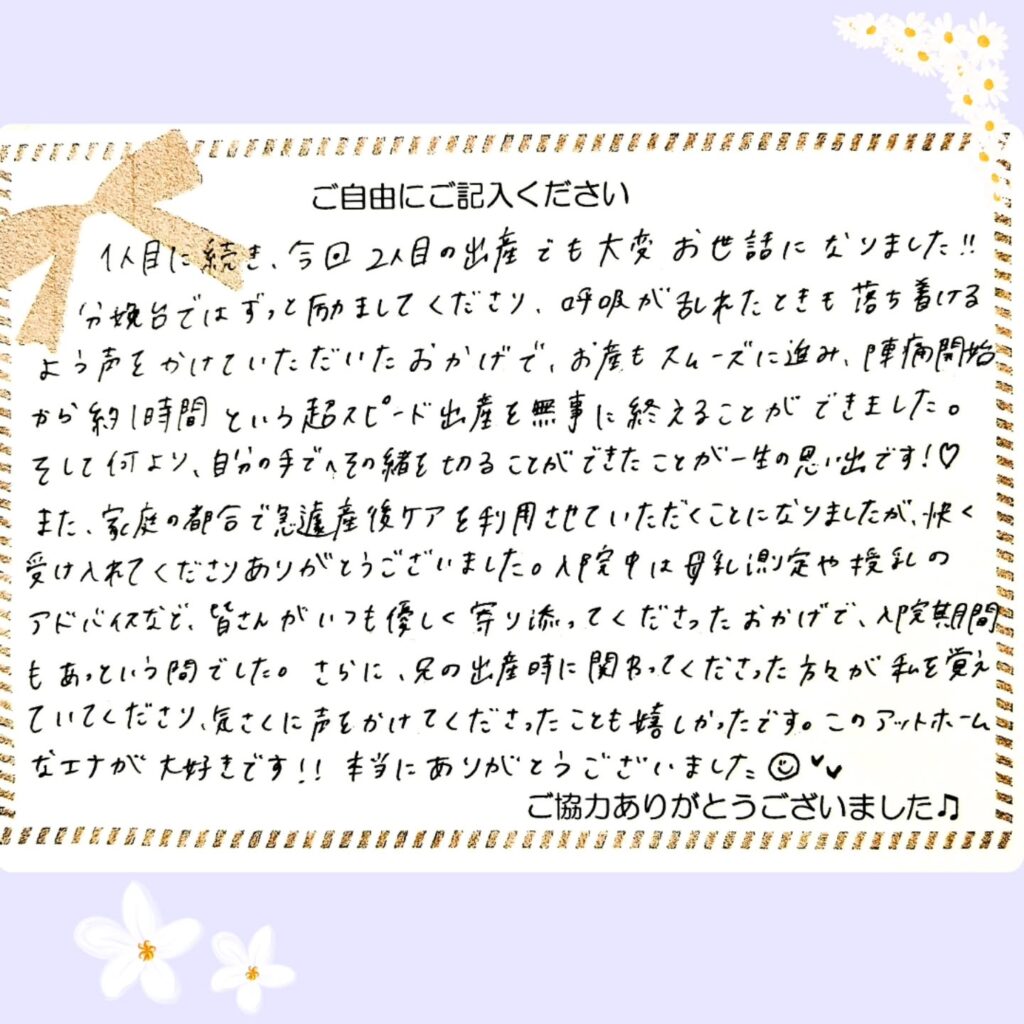 ご自由にご記入ください
1人目に続き、今回2人目の出産でも大変お世話になりました!!
分娩台ではずっと励ましてくださり、呼吸が乱れたときも落ち着ける
よう声をかけていただいたおかげで、お産もスムーズに進み、陣痛開始
から約1時間という超スピード出産を無事に終えることができました。
そして何より、自分の手でへその緒を切ることができたことが一生の思い出です!♡
また、家庭の都合で急遽産後ケアを利用させていただくことになりましたが、快く
受け入れてくださりありがとうございました。入院中は母乳測定や授乳の
アドバイスなど、皆さんがいつも優しく寄り添ってくださったおかげで、入院期間
もあっという間でした。さらに、兄の出産時に関わってくださった方々が私を覚え
ていてくださり、気さくに声をかけてくださったことも嬉しかったです。このアットホーム
なエナが大好きです!! 本当にありがとうございました
ご協力ありがとうございました♫